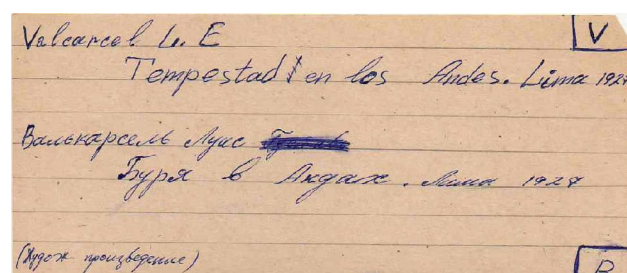 Valcarcel L. E
V
Tempestad en los Andes. Lima 1927
Валькарсель Луис
Буря в Андах. Лима 1927
(Худож произведение)